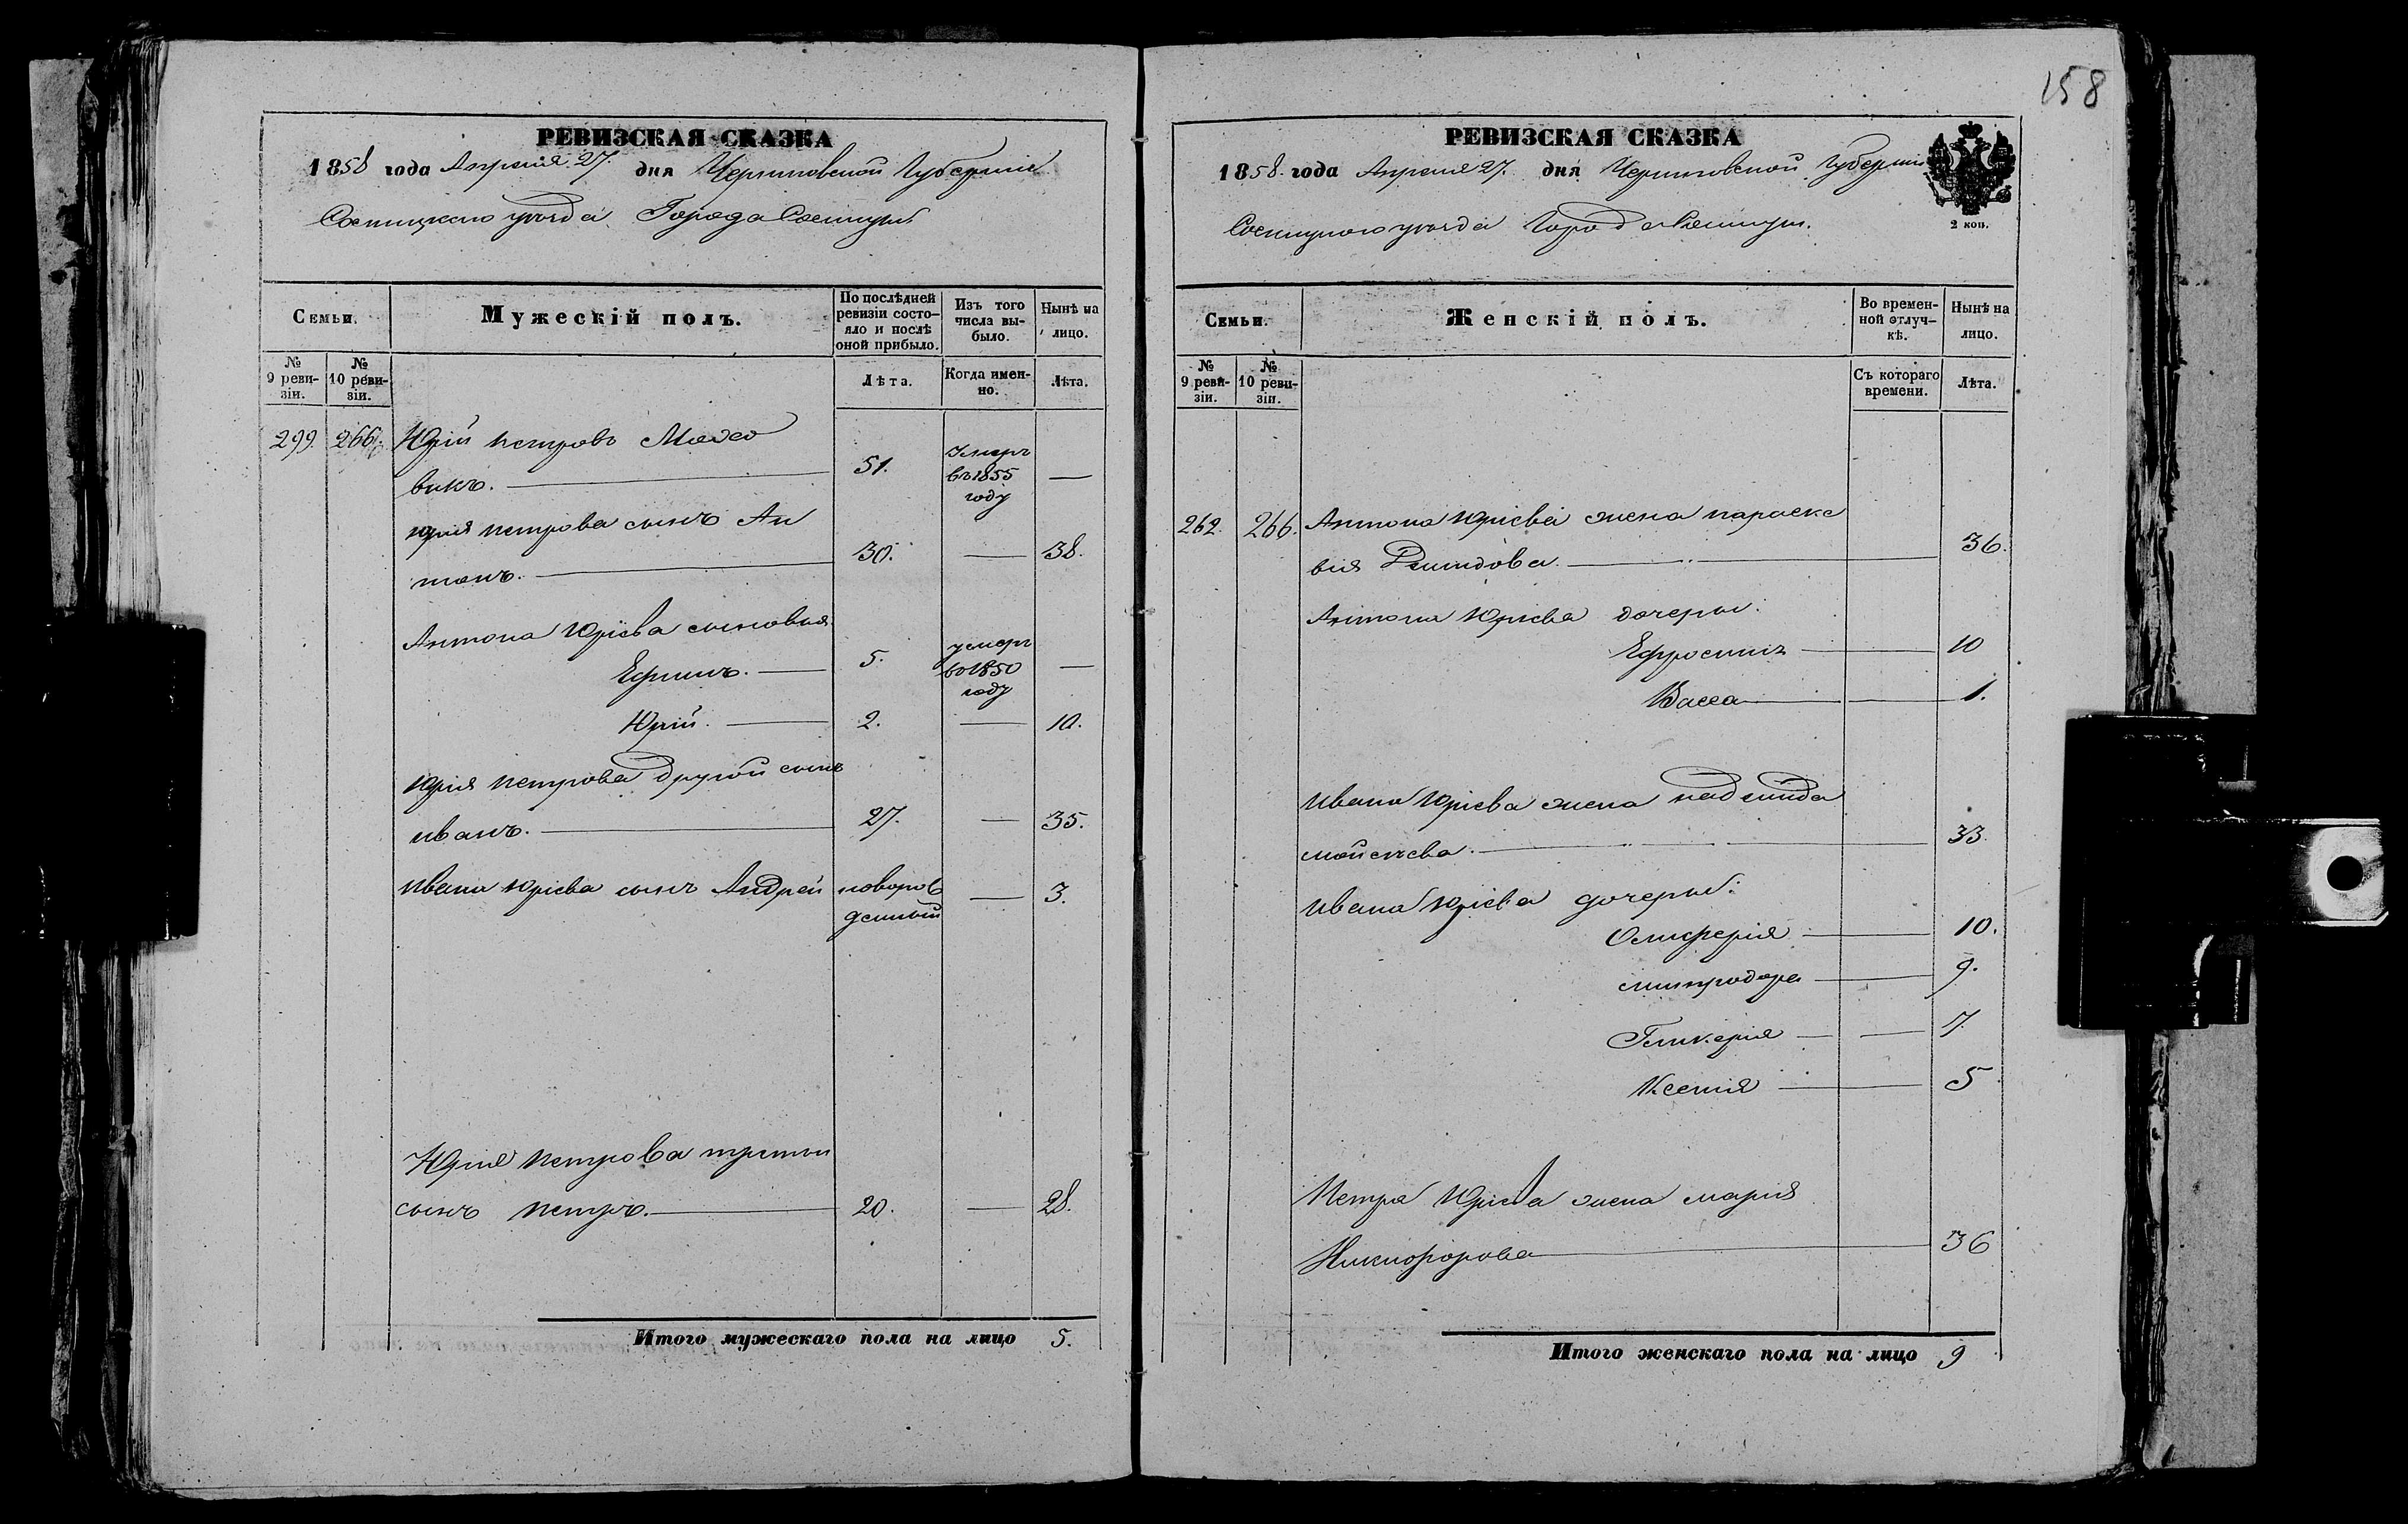 158
РЕВИЗСКАЯ СКАЗКА
1858 года Апреля 27. дня Черниговской Губерніи
Сосницкаго уѣзда Города Сосницы
Семьи.
Мужескій полъ.
По послѣдней ревизіи состояло и послѣ оной прибыло.
Изъ того числа выбыло.
Нынѣ на лицо.
№ 9 ревизіи.
№ 10 ревизіи.
Лѣта.
Когда именно.
Лѣта.
299. 266. Юрій петровъ
викъ. 51. Умеръ въ 1855 году —
юрия петрова сынъ Ан
тонъ. 30. — 38.
Антона Юріева сыновья
Ефимъ. 5. умеръ въ 1850 году —
Юрій. 2. — 10.
юрія петрова другой сынъ
иванъ. 27. — 35.
ивана юріева сынъ Андрей новорож
денный — 3.
Юрия петрова третий
сынъ петръ. 20. — 28.
Итого мужескаго пола на лицо 5.
РЕВИЗСКАЯ СКАЗКА
1858. года Апреля 27. дня Черниговской Губерніи
Сосницкого уѣзда Города Сосницы.
2 коп.
Семьи.
Женскій полъ.
Во временной отлучкѣ.
Нынѣ на лицо.
№ 9 ревизіи.
№ 10 ревизіи.
Съ котораго времени.
Лѣта.
262. 266. Антона юріева жена параске
вия 36.
Антона Юріева дочеры:
Ефросиния 10
Васса 1.
ивана Юріева жена надежда
мойсеева. 33.
ивана юріева дочеры:
Олиферія 10.
митродора 9.
Гликерия 7.
Ксенія 5
Петра Юріева жена мария
Никифорова 36
Итого женскаго пола на лицо 9